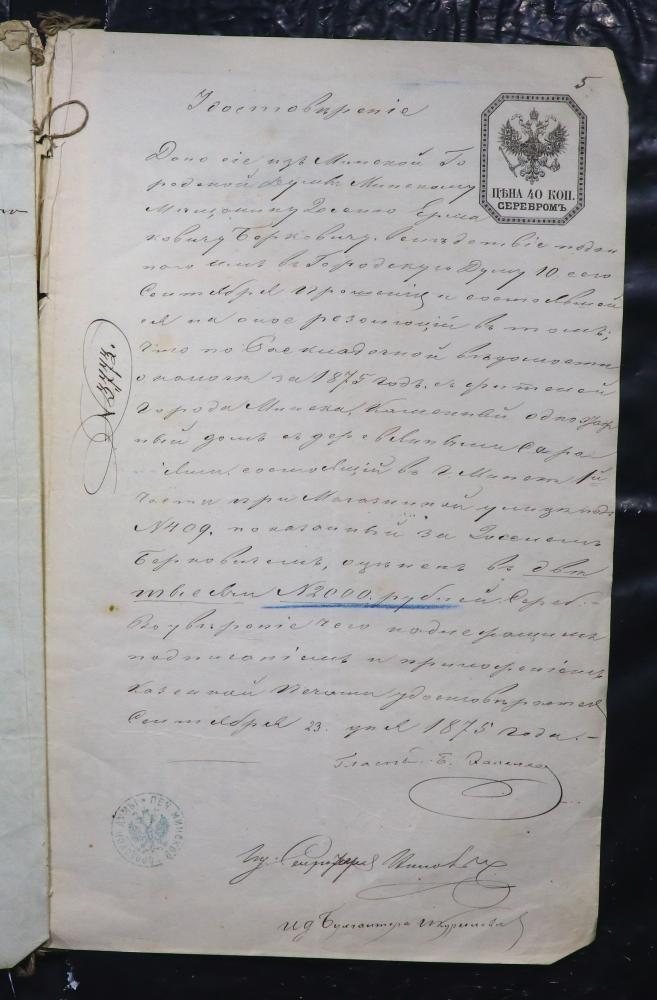 5
Удостовѣреніе
ЦѢНА 40 КОП.
СЕРЕБРОМЪ
Дано сіе изъ Минской Го
родской Думы Минскому
Мѣщанину Іоселю
ковичу Берковичу, вслѣдствіе подан
наго имъ въ Городскую Думу 10 сего
Сентября прошенія и состоявшей
ся на оное резолюціи въ томъ,
что по Раскладочной вѣдомости
о налогѣ за 1875 годъ съ жителей
города Минска, Каменный одноэтаж
ный домъ съ деревянными Сара
ями, состоящій въ г. Минскѣ 1й
части при Магазинной улицѣ подъ
№ 409. показанный за Іоселемъ
Берковичемъ, оцѣненъ въ двѣ
тысячи № 2000. рублей Сереб.-
Въ увѣреніе чего надлежащимъ
подписаніемъ и приложеніемъ
Казенной Печати удостовѣряется
Сентября 23 дня 1875 года.-
Гласн. Б.
Секретаря
ид Бухгалтера
ПЕЧ. МИНСКОЙ ГОРОДСКОЙ ДУМЫ